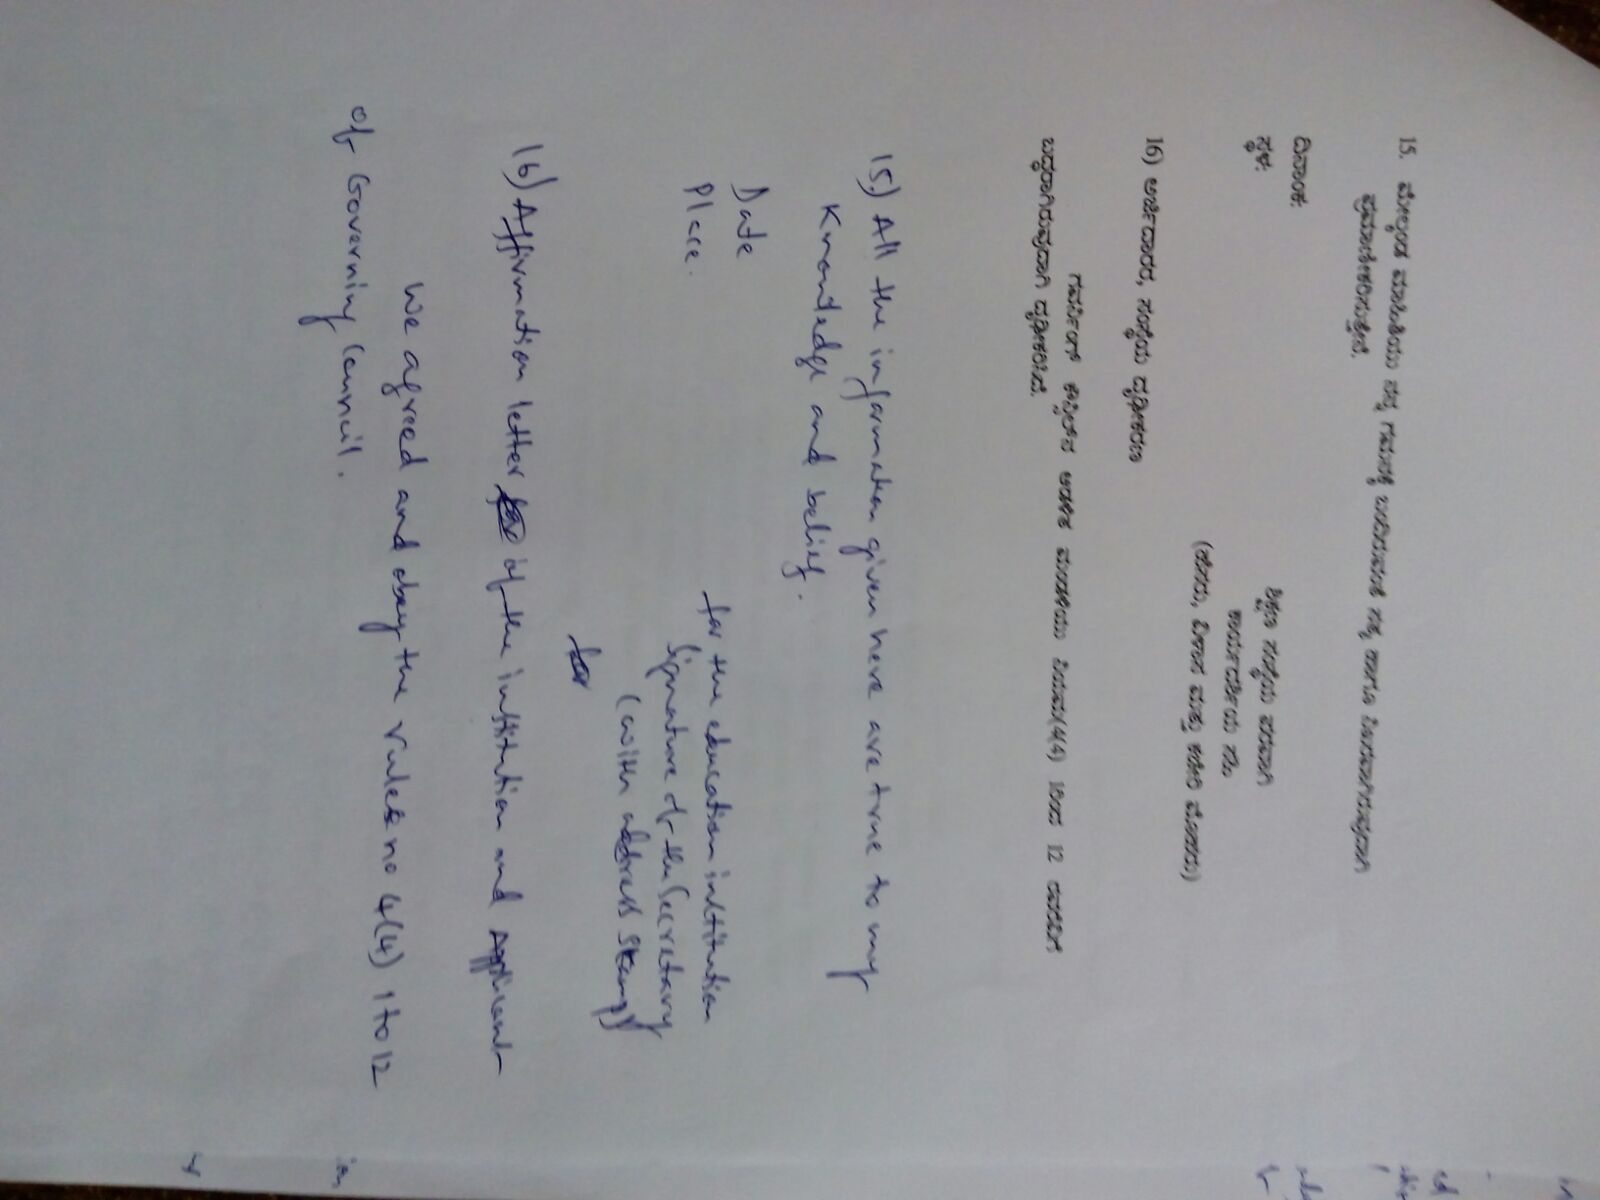 15. ಮೇಲ್ಕಂಡ ಮಾಹಿತಿಯು ನನ್ನ ಗಮನಕ್ಕೆ ಬಂದಿರುವಂತೆ ಸತ್ಯ ಹಾಗೂ ನಿಜವಾಗಿರುವುದಾಗಿ
ಪ್ರಮಾಣೀಕರಿಸುತ್ತೇನೆ.
ದಿನಾಂಕ:
ಸ್ಥಳ:
ಶಿಕ್ಷಣ ಸಂಸ್ಥೆಯ ಪರವಾಗಿ
ಕಾರ್ಯದರ್ಶಿಯ ಸಹಿ
(ಹೆಸರು, ವಿಳಾಸ ಮತ್ತು ಕಚೇರಿ ಮೊಹರು)
16) ಅರ್ಜಿದಾರರ, ಸಂಸ್ಥೆಯ ದೃಢೀಕರಣ
ಗವರ್ನಿಂಗ್ ಕೌನ್ಸಿಲ್‌ನ ಆಡಳಿತ ಮಂಡಳಿಯು ನಿಯಮ(4(4) 1ರಿಂದ 12 ರವರೆವಿಗೆ
ಬದ್ಧರಾಗಿರುವುದಾಗಿ ದೃಢೀಕರಿಸಿದೆ.
15.) All the information given here are true to my
Knowledge and belief.
Date
Place.
for the education institution
Signature of the Secretary
(with address Stamp)
for
16) Affirmation letter of the institution and Applicant
We agreed and obey the rules no 4(4) 1 to 12
of Governing Council.